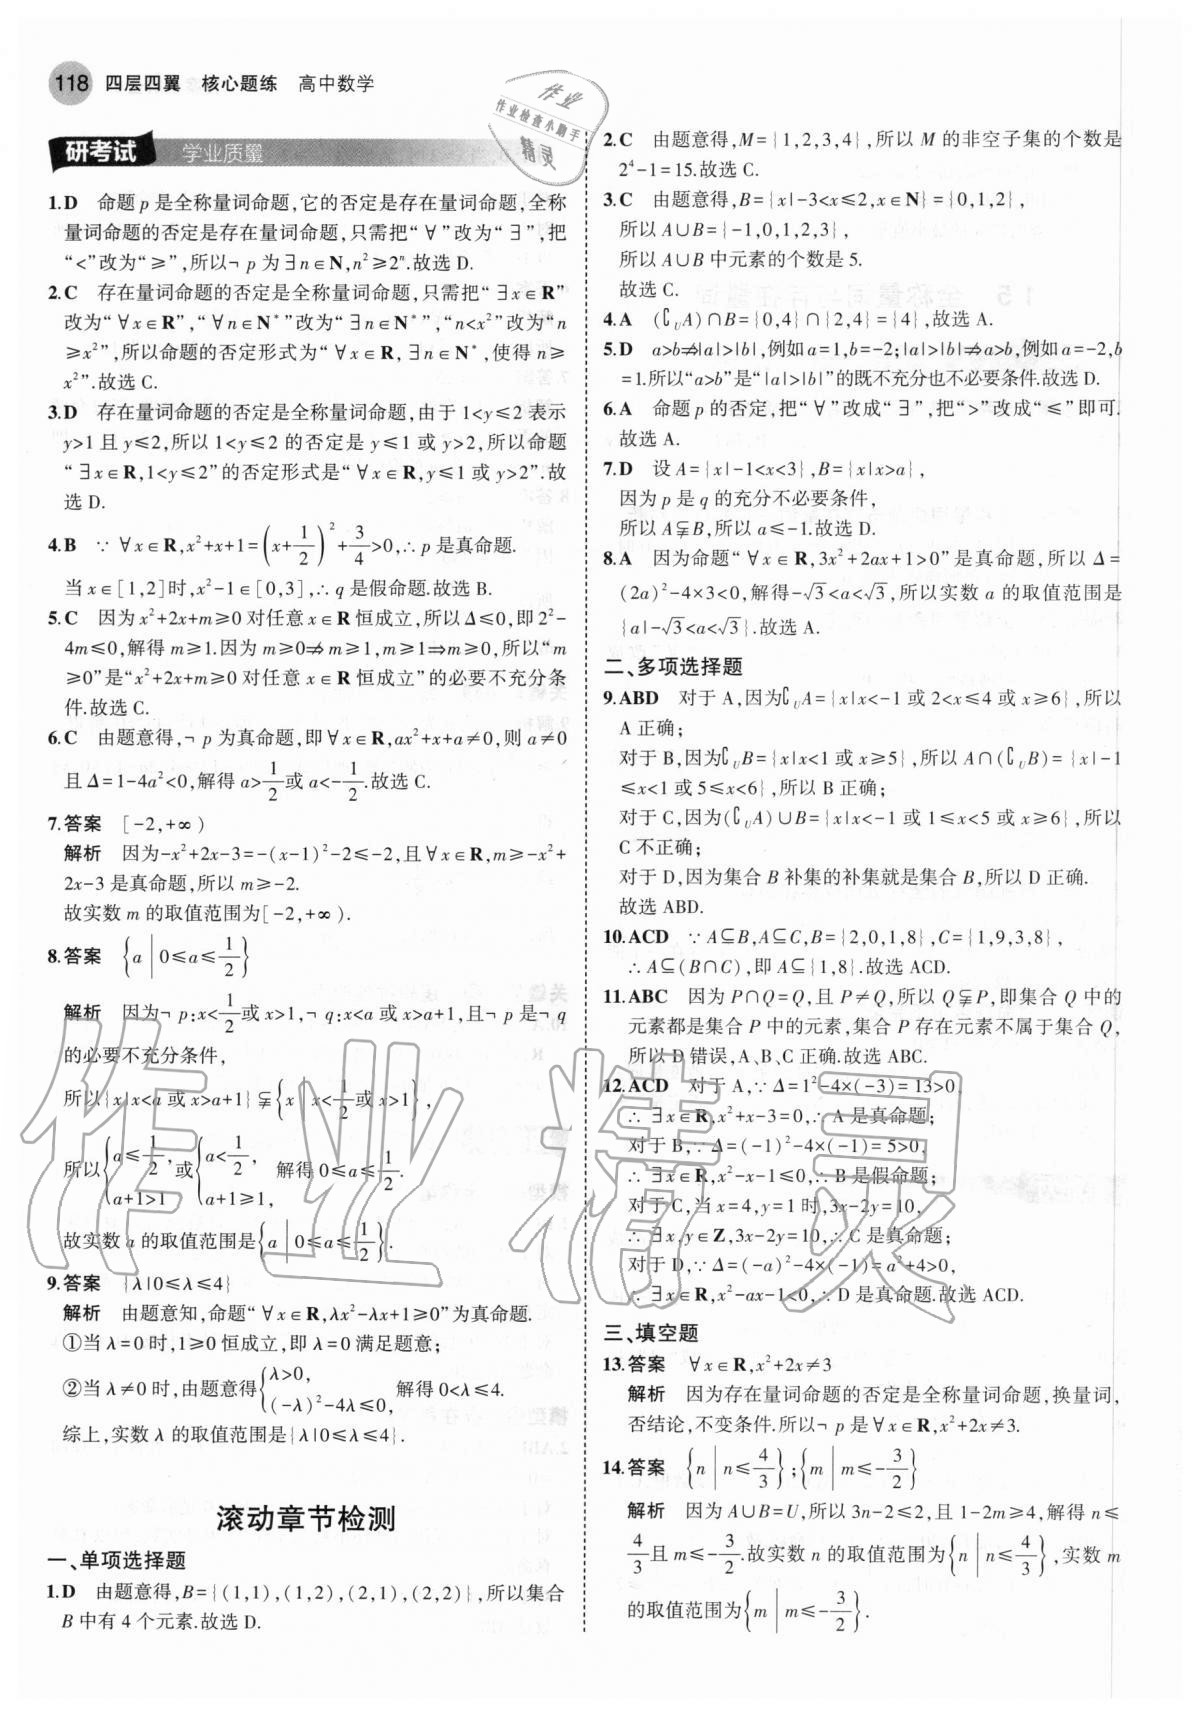 118 四层四翼 核心题练 高中数学
研考试 学业质量
1.D 命题p是全称量词命题,它的否定是存在量词命题,全称
量词命题的否定是存在量词命题,只需把“∀”改为“∃”,把
“<”改为“≥”,所以¬p为∃n∈N,n²≥2ⁿ.故选D.
2.C 存在量词命题的否定是全称量词命题,只需把“∃x∈R”
改为“∀x∈R”,“∀n∈N*”改为“∃n∈N*”,“n<x²”改为“n
≥x²”,所以命题的否定形式为“∀x∈R,∃n∈N*,使得n≥
x²”.故选C.
3.D 存在量词命题的否定是全称量词命题,由于1<y≤2表示
y>1且y≤2,所以1<y≤2的否定是y≤1或y>2,所以命题
“∃x∈R,1<y≤2”的否定形式是“∀x∈R,y≤1或y>2”.故
选D.
4.B ∵∀x∈R,x²+x+1=(x+1/2)²+3/4>0,∴p是真命题.
当x∈[1,2]时,x²-1∈[0,3],∴q是假命题.故选B.
5.C 因为x²+2x+m≥0对任意x∈R恒成立,所以Δ≤0,即2²-
4m≤0,解得m≥1.因为m≥0⇏m≥1,m≥1⇒m≥0,所以“m
≥0”是“x²+2x+m≥0对任意x∈R恒成立”的必要不充分条
件.故选C.
6.C 由题意得,¬p为真命题,即∀x∈R,ax²+x+a≠0,则a≠0
且Δ=1-4a²<0,解得a>1/2或a<-1/2.故选C.
7.答案 [-2,+∞)
解析 因为-x²+2x-3=-(x-1)²-2≤-2,且∀x∈R,m≥-x²+
2x-3是真命题,所以m≥-2.
故实数m的取值范围为[-2,+∞).
8.答案 {a|0≤a≤1/2}
解析 因为¬p:x<1/2或x>1,¬q:x<a或x>a+1,且¬p是¬q
的必要不充分条件,
所以{x|x<a或x>a+1}⫋{x|x<1/2或x>1},
所以{a≤1/2,a+1>1或{a<1/2,a+1≥1, 解得0≤a≤1/2.
故实数a的取值范围是{a|0≤a≤1/2}.
9.答案 {λ|0≤λ≤4}
解析 由题意知,命题“∀x∈R,λx²-λx+1≥0”为真命题.
①当λ=0时,1≥0恒成立,即λ=0满足题意;
②当λ≠0时,由题意得{λ>0,(-λ)²-4λ≤0, 解得0<λ≤4.
综上,实数λ的取值范围是{λ|0≤λ≤4}.
滚动章节检测
一、单项选择题
1.D 由题意得,B={(1,1),(1,2),(2,1),(2,2)},所以集合
B中有4个元素.故选D.
2.C 由题意得,M={1,2,3,4},所以M的非空子集的个数是
2⁴-1=15.故选C.
3.C 由题意得,B={x|-3<x≤2,x∈N}={0,1,2},
所以A∪B={-1,0,1,2,3},
所以A∪B中元素的个数是5.
故选C.
4.A (∁UA)∩B={0,4}∩{2,4}={4},故选A.
5.D a>b⇏|a|>|b|,例如a=1,b=-2;|a|>|b|⇏a>b,例如a=-2,b
=1.所以“a>b”是“|a|>|b|”的既不充分也不必要条件.故选D.
6.A 命题p的否定,把“∀”改成“∃”,把“>”改成“≤”即可.
故选A.
7.D 设A={x|-1<x<3},B={x|x>a},
因为p是q的充分不必要条件,
所以A⫋B,所以a≤-1.故选D.
8.A 因为命题“∀x∈R,3x²+2ax+1>0”是真命题,所以Δ=
(2a)²-4×3<0,解得-√3<a<√3,所以实数a的取值范围是
{a|-√3<a<√3}.故选A.
二、多项选择题
9.ABD 对于A,因为∁UA={x|x<-1或2<x≤4或x≥6},所以
A正确;
对于B,因为∁UB={x|x<1或x≥5},所以A∩(∁UB)={x|-1
≤x<1或5≤x<6},所以B正确;
对于C,因为(∁UA)∪B={x|x<-1或1≤x<5或x≥6},所以
C不正确;
对于D,因为集合B补集的补集就是集合B,所以D正确.
故选ABD.
10.ACD ∵A⊆B,A⊆C,B={2,0,1,8},C={1,9,3,8},
∴A⊆(B∩C),即A⊆{1,8}.故选ACD.
11.ABC 因为P∩Q=Q,且P≠Q,所以Q⫋P,即集合Q中的
元素都是集合P中的元素,集合P存在元素不属于集合Q,
所以D错误,A、B、C正确.故选ABC.
12.ACD 对于A,∵Δ=1²-4×(-3)=13>0,
∴∃x∈R,x²+x-3=0,∴A是真命题;
对于B,∵Δ=(-1)²-4×(-1)=5>0,
∴∃x∈R,x²-x-1≤0,∴B是假命题;
对于C,当x=4,y=1时,3x-2y=10,
∴∃x,y∈Z,3x-2y=10,∴C是真命题;
对于D,∵Δ=(-a)²-4×(-1)=a²+4>0,
∴∃x∈R,x²-ax-1<0,∴D是真命题.故选ACD.
三、填空题
13.答案 ∀x∈R,x²+2x≠3
解析 因为存在量词命题的否定是全称量词命题,换量词,
否结论,不变条件.所以¬p是∀x∈R,x²+2x≠3.
14.答案 {n|n≤4/3};{m|m≤-3/2}
解析 因为A∪B=U,所以3n-2≤2,且1-2m≥4,解得n≤
4/3且m≤-3/2.故实数n的取值范围为{n|n≤4/3},实数m
的取值范围为{m|m≤-3/2}.
作业
作业检查小助手
精灵
作业精灵